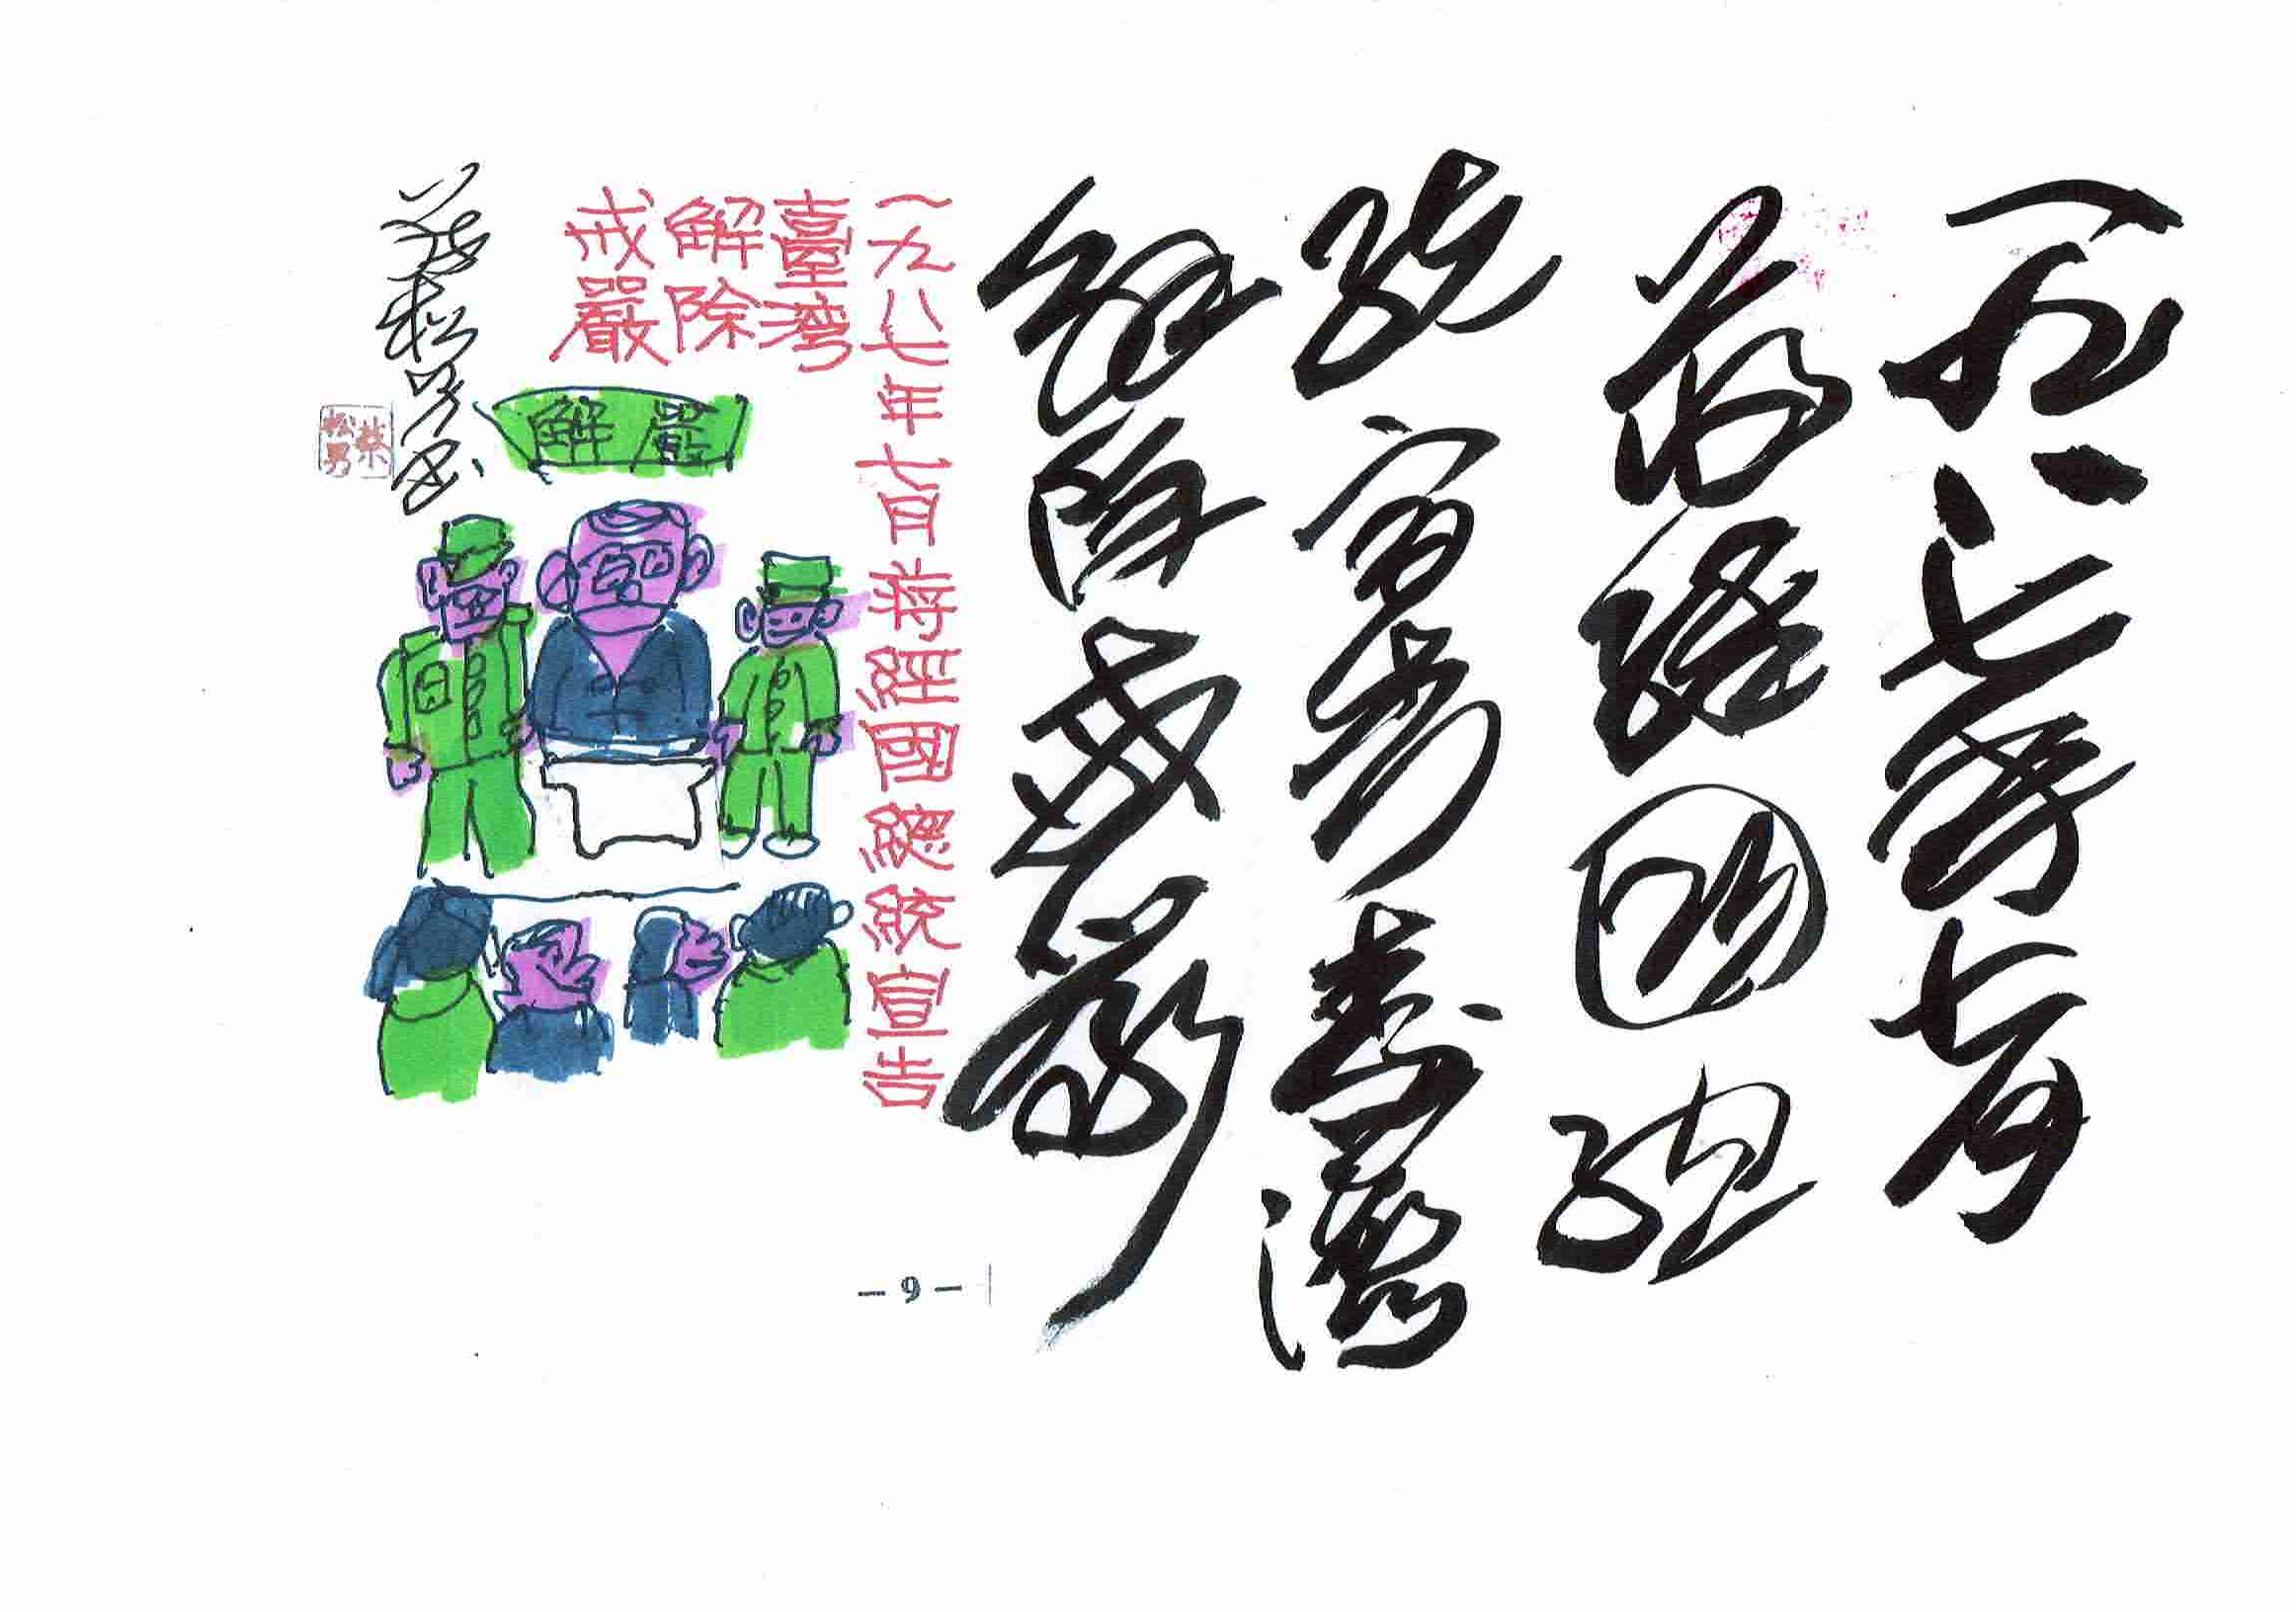 一九八七年七月
蔣經國總
統宣布臺灣
解除戒嚴
一九八七年七月蔣經國總統宣告
臺灣
解除
戒嚴
解嚴
蔡松男書
蔡松男
— 9 —